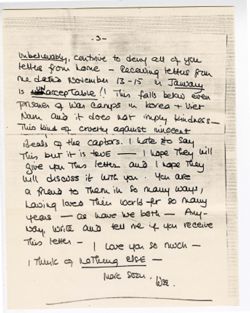 - 3 -
Unbelievably, continue to deny all of you
letters from home - Receiving letters from
me dated November 13-15 in January
is unacceptable!! This falls below even
prisoner of war camps in Korea + Viet
Nam and it does not imply kindness -
This kind of cruelty against innocent
ideals of the captors. I hate to say
this but it is true - I hope they will
give you this letter and I hope they
will discuss it with you. You are
a friend to them in so many ways,
having loved their world for so many
years - as have we both - Any-
way, write and tell me if you receive
this letter - I love you so much -
I think of nothing else -
More soon.